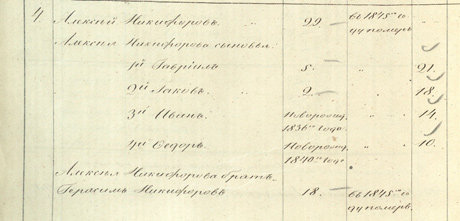 4 Алексѣй Никифоровъ. " 22. — въ 1845мъ го
ду померъ
Алексѣя Никифорова сыновья.
1й Гавріилъ 5. — " " 21.
2й Яковъ. 2. — " " 18.
3й Иванъ. Новорожд. " " 14.
1836го года.
4й Сидоръ. Новорожд. " " 10.
1840го года
Алексѣя Никифорова братъ
Герасимъ Никифоровъ 18. — въ 1845мъ го
ду померъ.